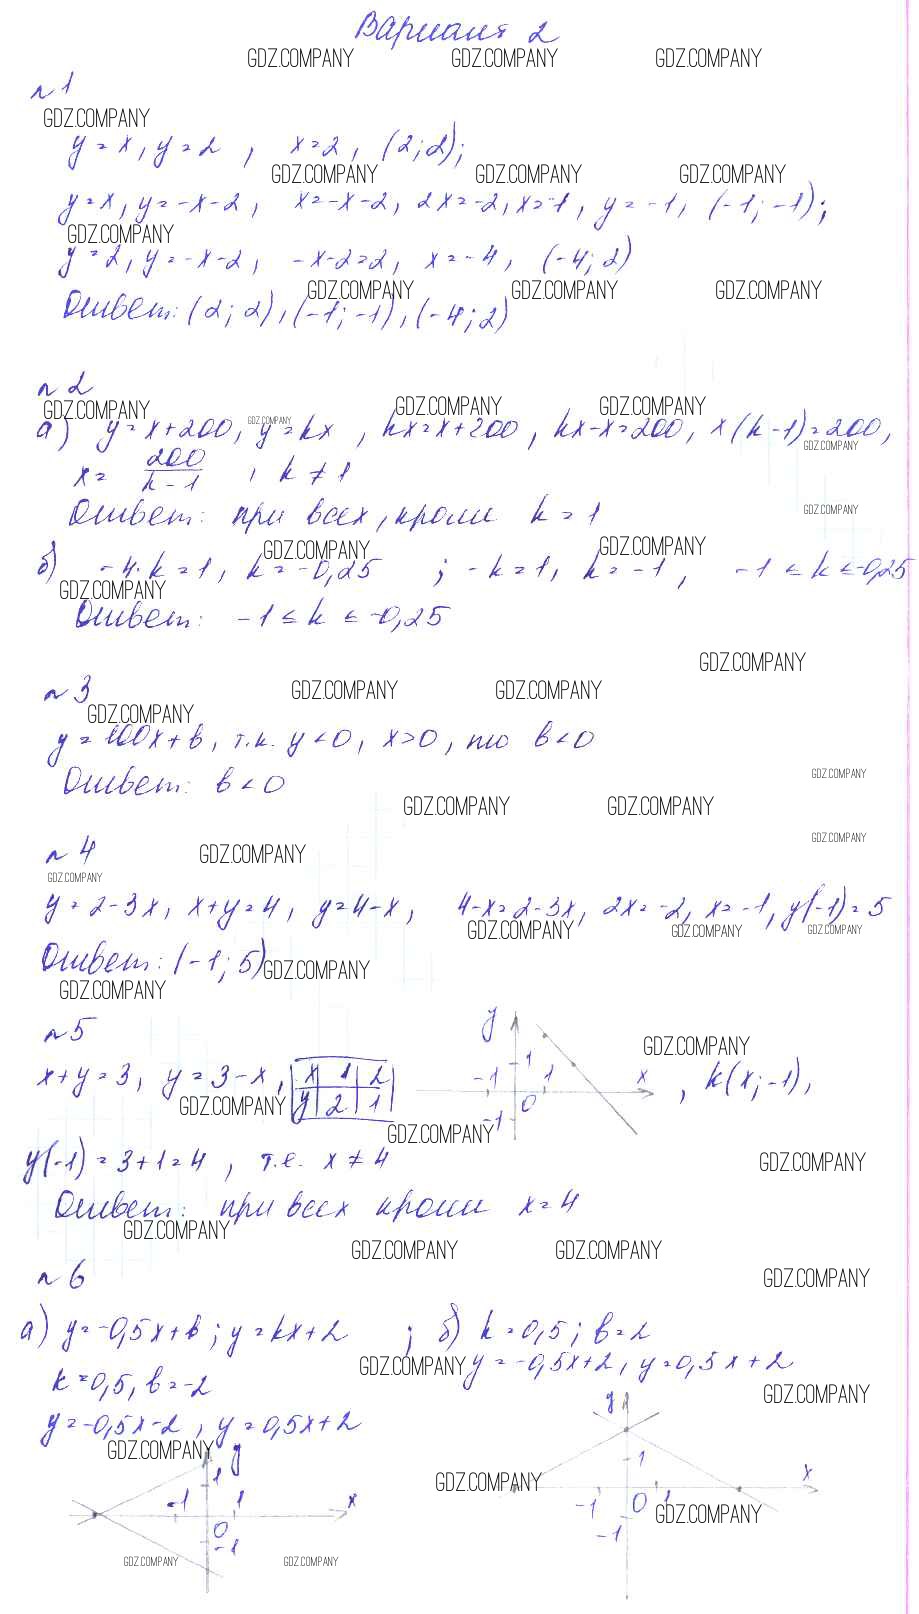 Вариант 2
GDZ.COMPANY GDZ.COMPANY GDZ.COMPANY
n 1
GDZ.COMPANY
y = x, y = 2, x = 2, (2; 2);
GDZ.COMPANY GDZ.COMPANY GDZ.COMPANY
y = x, y = -x-2, x = -x-2, 2x = -2, x = -1, y = -1, (-1; -1);
GDZ.COMPANY
y = 2, y = -x-2, -x-2 = 2, x = -4, (-4; 2)
GDZ.COMPANY GDZ.COMPANY GDZ.COMPANY
Ответ: (2; 2), (-1; -1), (-4; 2)
n 2
GDZ.COMPANY GDZ.COMPANY GDZ.COMPANY
GDZ.COMPANY
а) y = x+200, y = kx, kx = x+200, kx-x = 200, x(k-1) = 200,
GDZ.COMPANY
x = 200/(k-1), k ≠ 1
Ответ: при всех, кроме k = 1
GDZ.COMPANY
GDZ.COMPANY GDZ.COMPANY
б) -4·k = 1, k = -0,25; -k = 1, k = -1, -1 ≤ k ≤ -0,25
GDZ.COMPANY
Ответ: -1 ≤ k ≤ -0,25
GDZ.COMPANY
n 3
GDZ.COMPANY GDZ.COMPANY
GDZ.COMPANY
y = 100x + b, т.к. y < 0, x > 0, то b < 0
GDZ.COMPANY
Ответ: b < 0
GDZ.COMPANY GDZ.COMPANY
GDZ.COMPANY
n 4
GDZ.COMPANY
GDZ.COMPANY
y = 2-3x, x+y = 4, y = 4-x, 4-x = 2-3x, 2x = -2, x = -1, y(-1) = 5
GDZ.COMPANY GDZ.COMPANY GDZ.COMPANY
Ответ: (-1; 5)
GDZ.COMPANY
GDZ.COMPANY
n 5
y
GDZ.COMPANY
x+y = 3, y = 3-x, x 1 2
y 2 1
-1 1 1 x 0 -1
, k(x; -1),
GDZ.COMPANY
GDZ.COMPANY
y(-1) = 3+1 = 4, т.е. x ≠ 4
GDZ.COMPANY
Ответ: при всех кроме x = 4
GDZ.COMPANY
GDZ.COMPANY GDZ.COMPANY
n 6
GDZ.COMPANY
а) y = -0,5x+b; y = kx+2; б) k = 0,5; b = 2
GDZ.COMPANY
y = -0,5x+2, y = 0,5x+2
k = 0,5, b = -2
GDZ.COMPANY
y = -0,5x-2, y = 0,5x+2
GDZ.COMPANY
y 1 -1 1 x 0 -1
y 1 x -1 0 1 -1
GDZ.COMPANY
GDZ.COMPANY
GDZ.COMPANY GDZ.COMPANY